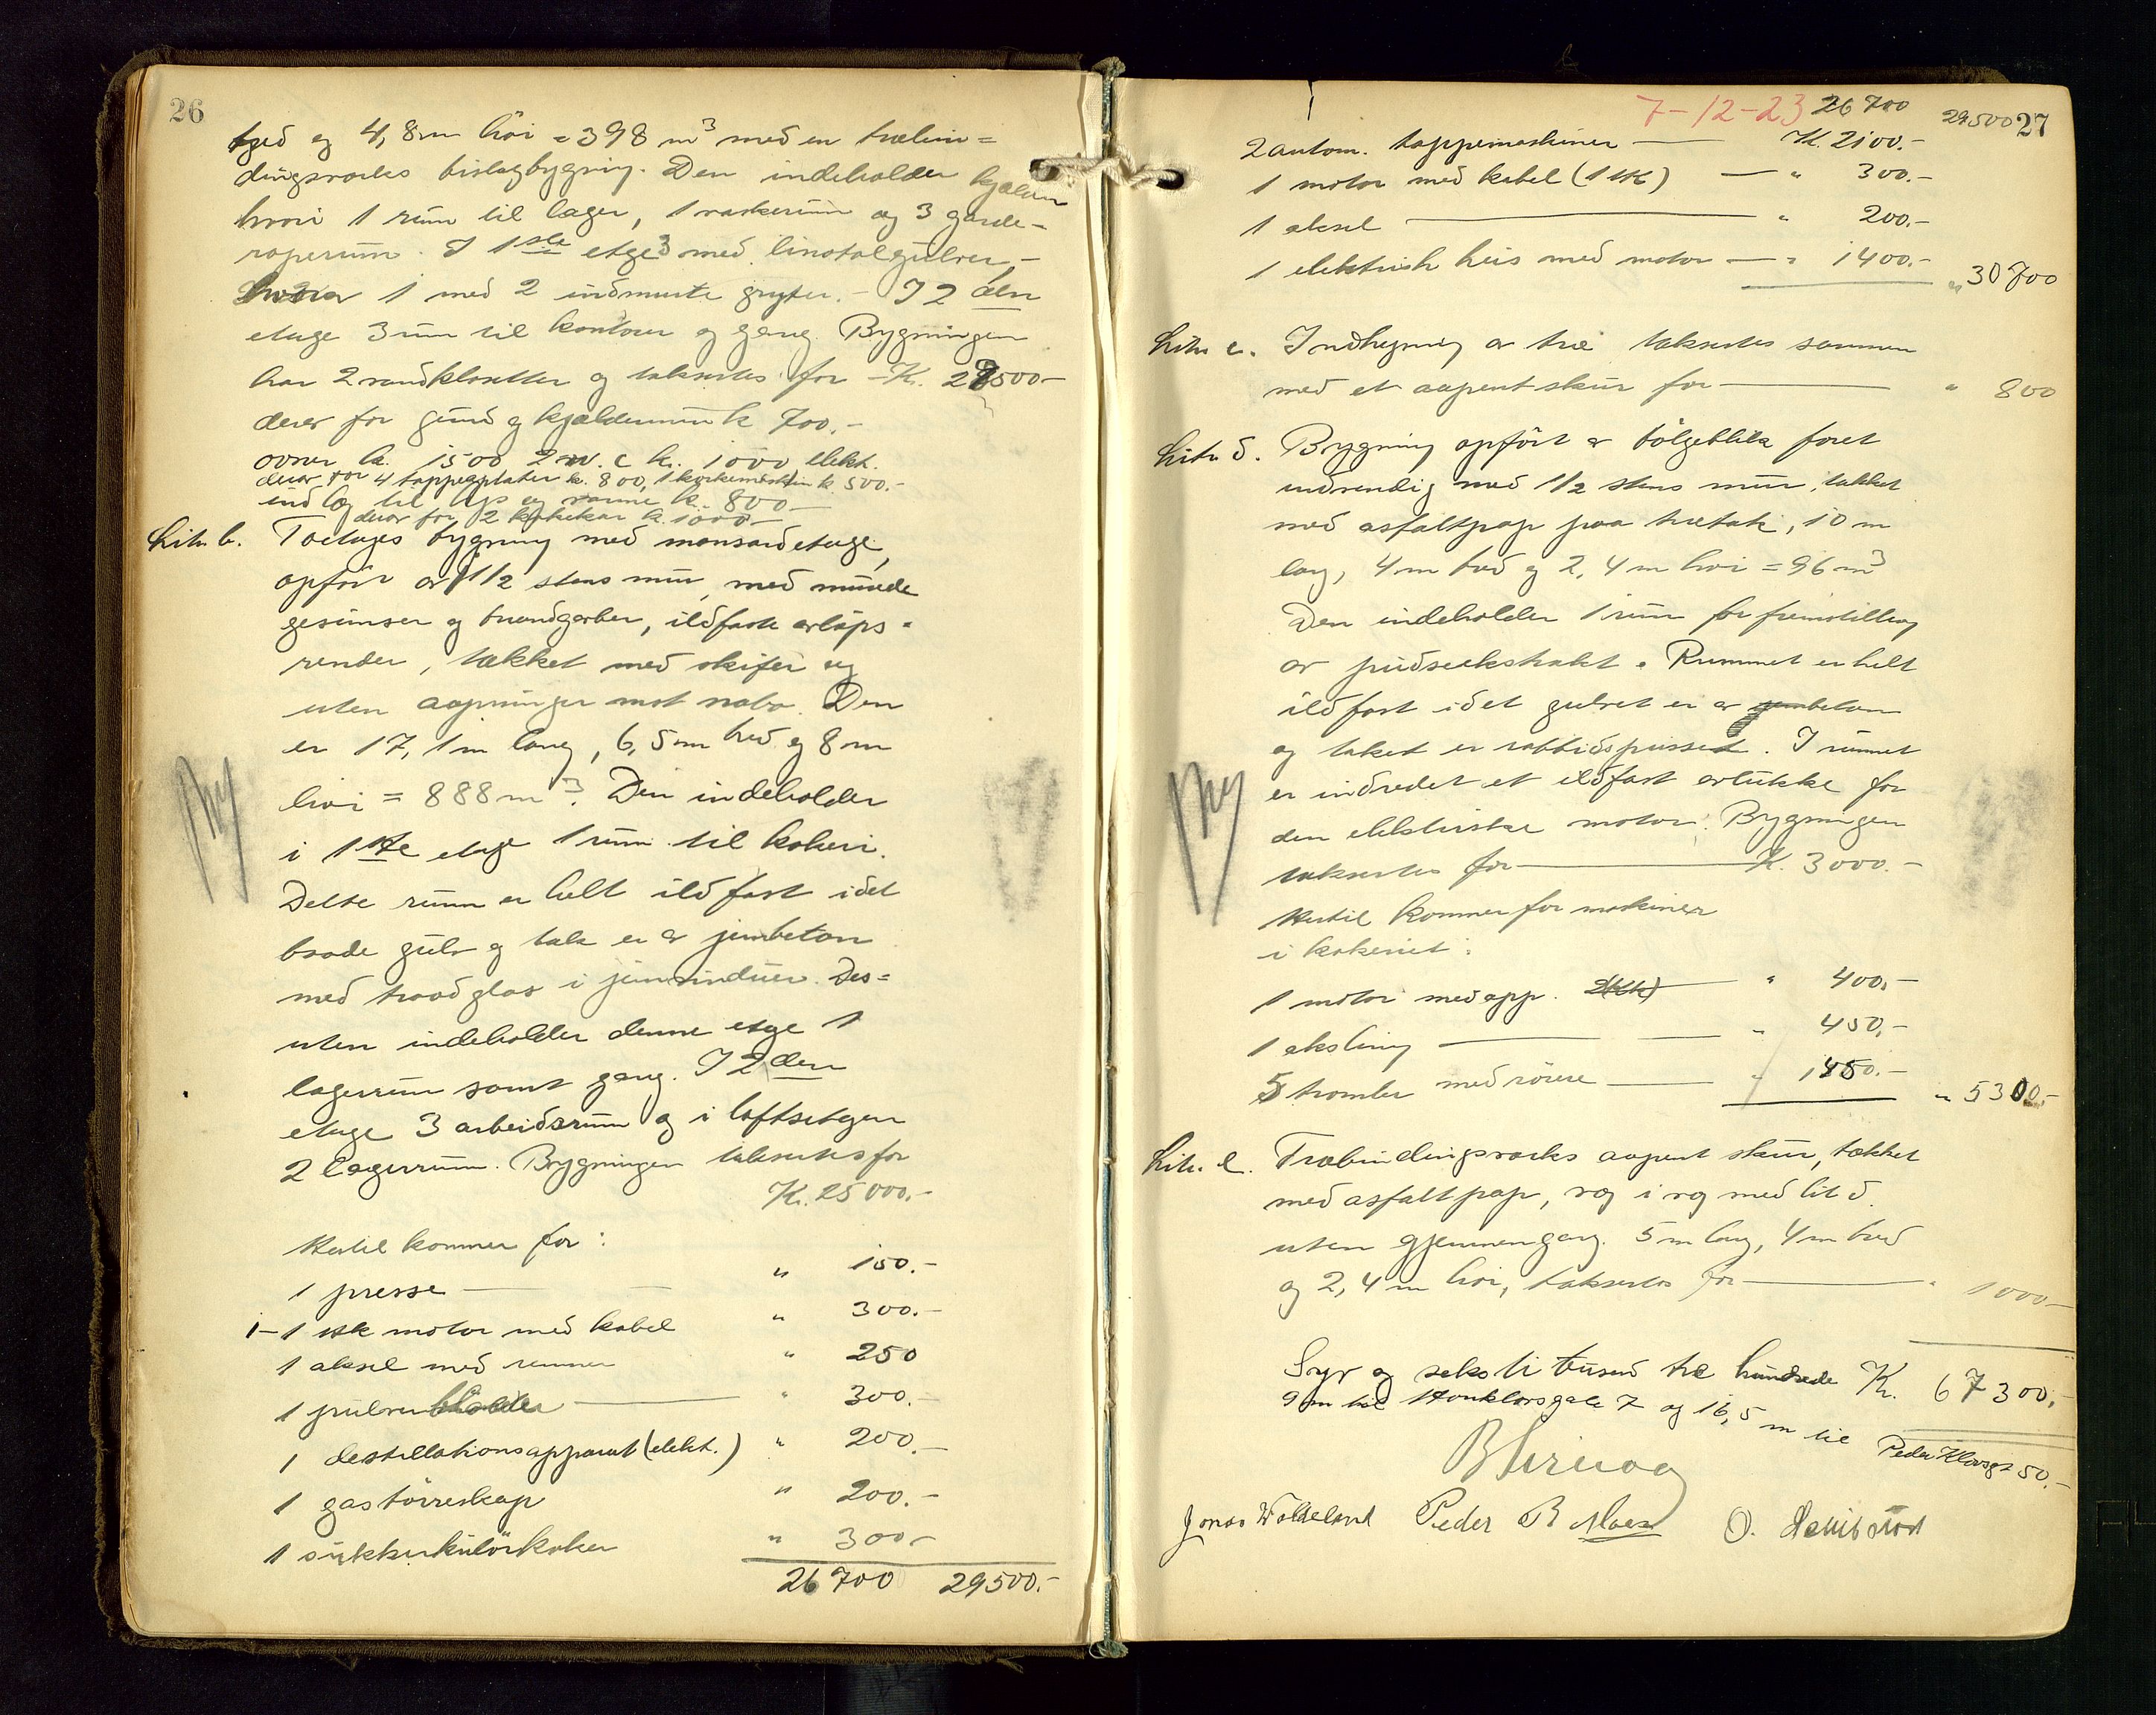 26
bred og 4,8m höi = 398 m³ med en trælin=
dingsverks bislagbygning. Den indeholder kjelder
hvori 1 rum til lager, 1 vaskerum og 3 garde-
roperum. I 1ste etge 3 med linotolgulver,-
hvorav 1 med 2 indmurte gryter. - I 2 den
etage 3 rum til kontorer og gang. Bygningen
har 2 vandklosetter og takseres for - Kr. 29500-
derav for grund og kjeldermur k 700,-
ovner k. 1500 2 w.c k. 1000 elekt.
derav for 4 tappeaplater k. 800, 1 korkemaskin k. 500.-
indlæg til lys og varme k. 800-
derav for 2 kokekar k. 1000-
Litr. b. Toetages bygning med mansardetage,
opfört av 1 1/2 stens mur, med murede
gesimser og brandgavler, ildfaste avlöps-
render, tækket med skifer og
uten aapninger mot nabo. Den
er 17,1m lang, 6,5m bred og 8m
höi = 888m³. Den indeholder
i 1ste etage 1 rum til kokeri.
Dette rum er helt ildfast idet
baade gulv og tak er av jernbeton
med traadglas i jernvinduer. Des=
uten indeholder denne etge 1
lagerrum samt gang. I 2den
etage 3 arbeidsrum og i loftsetgen
2 lagerrum. Bygningen takseres for
Kr. 25000.-
Ny
Hertil kommer for:
1 presse " 150.-
1-1 HK motor med kabel " 300.-
1 aksel med remmer " 250
1 pulver " 300.-
1 destillationsapparat (elekt.) " 200.-
1 gastörreskap " 200.-
1 sukkerkulörkoker " 300-
26700 29500.-
7-12-23 26700 29500 27
2 autom. tappemaskiner K. 2100.-
1 motor med kabel (1 HK) " 300.-
1 aksel " 200.-
1 elektrisk heis med motor " 1400.- " 30700
Litr c. Indhegning av træ takseres sammen
med et aapent skur for " 800
Litr d. Bygning opfört av bölgeblik foret
indvendig med 1/2 stens mur, tækket
med asfaltpap paa trætak, 10 m
lang, 4m bred og 2,4m höi = 96 m³
Den indeholder 1 rum for fremstilling
av pudseekstrakt. Rummet er helt
ildfast idet gulvet er av jernbeton
og taket er rabbidspusset. I rummet
er indredet et ildfast avlukke for
den elektriske motor. Bygningen
takseres for K. 3000.-
Ny
Hertil kommer for maskiner
i kokeriet:
1 motor med app. 2(HK) " 400,-
1 aksling " 450,-
5 tromler med rörere " 1450.- " 5300,-
Litr. e. Træbindingsverks aapent skur, tækket
med asfaltpap, væg i væg med lit d.
uten gjennemgang. 5m lang, 4m bred
og 2,4m höi, takseres for " 1000-
Syv og seksti tusend tre hundrede Kr. 67300,-
9 m til Hauklovsgate 7 og 16,5 m til Peder Klovsgt 50.-
Jonas Waldeland Peder B Moen